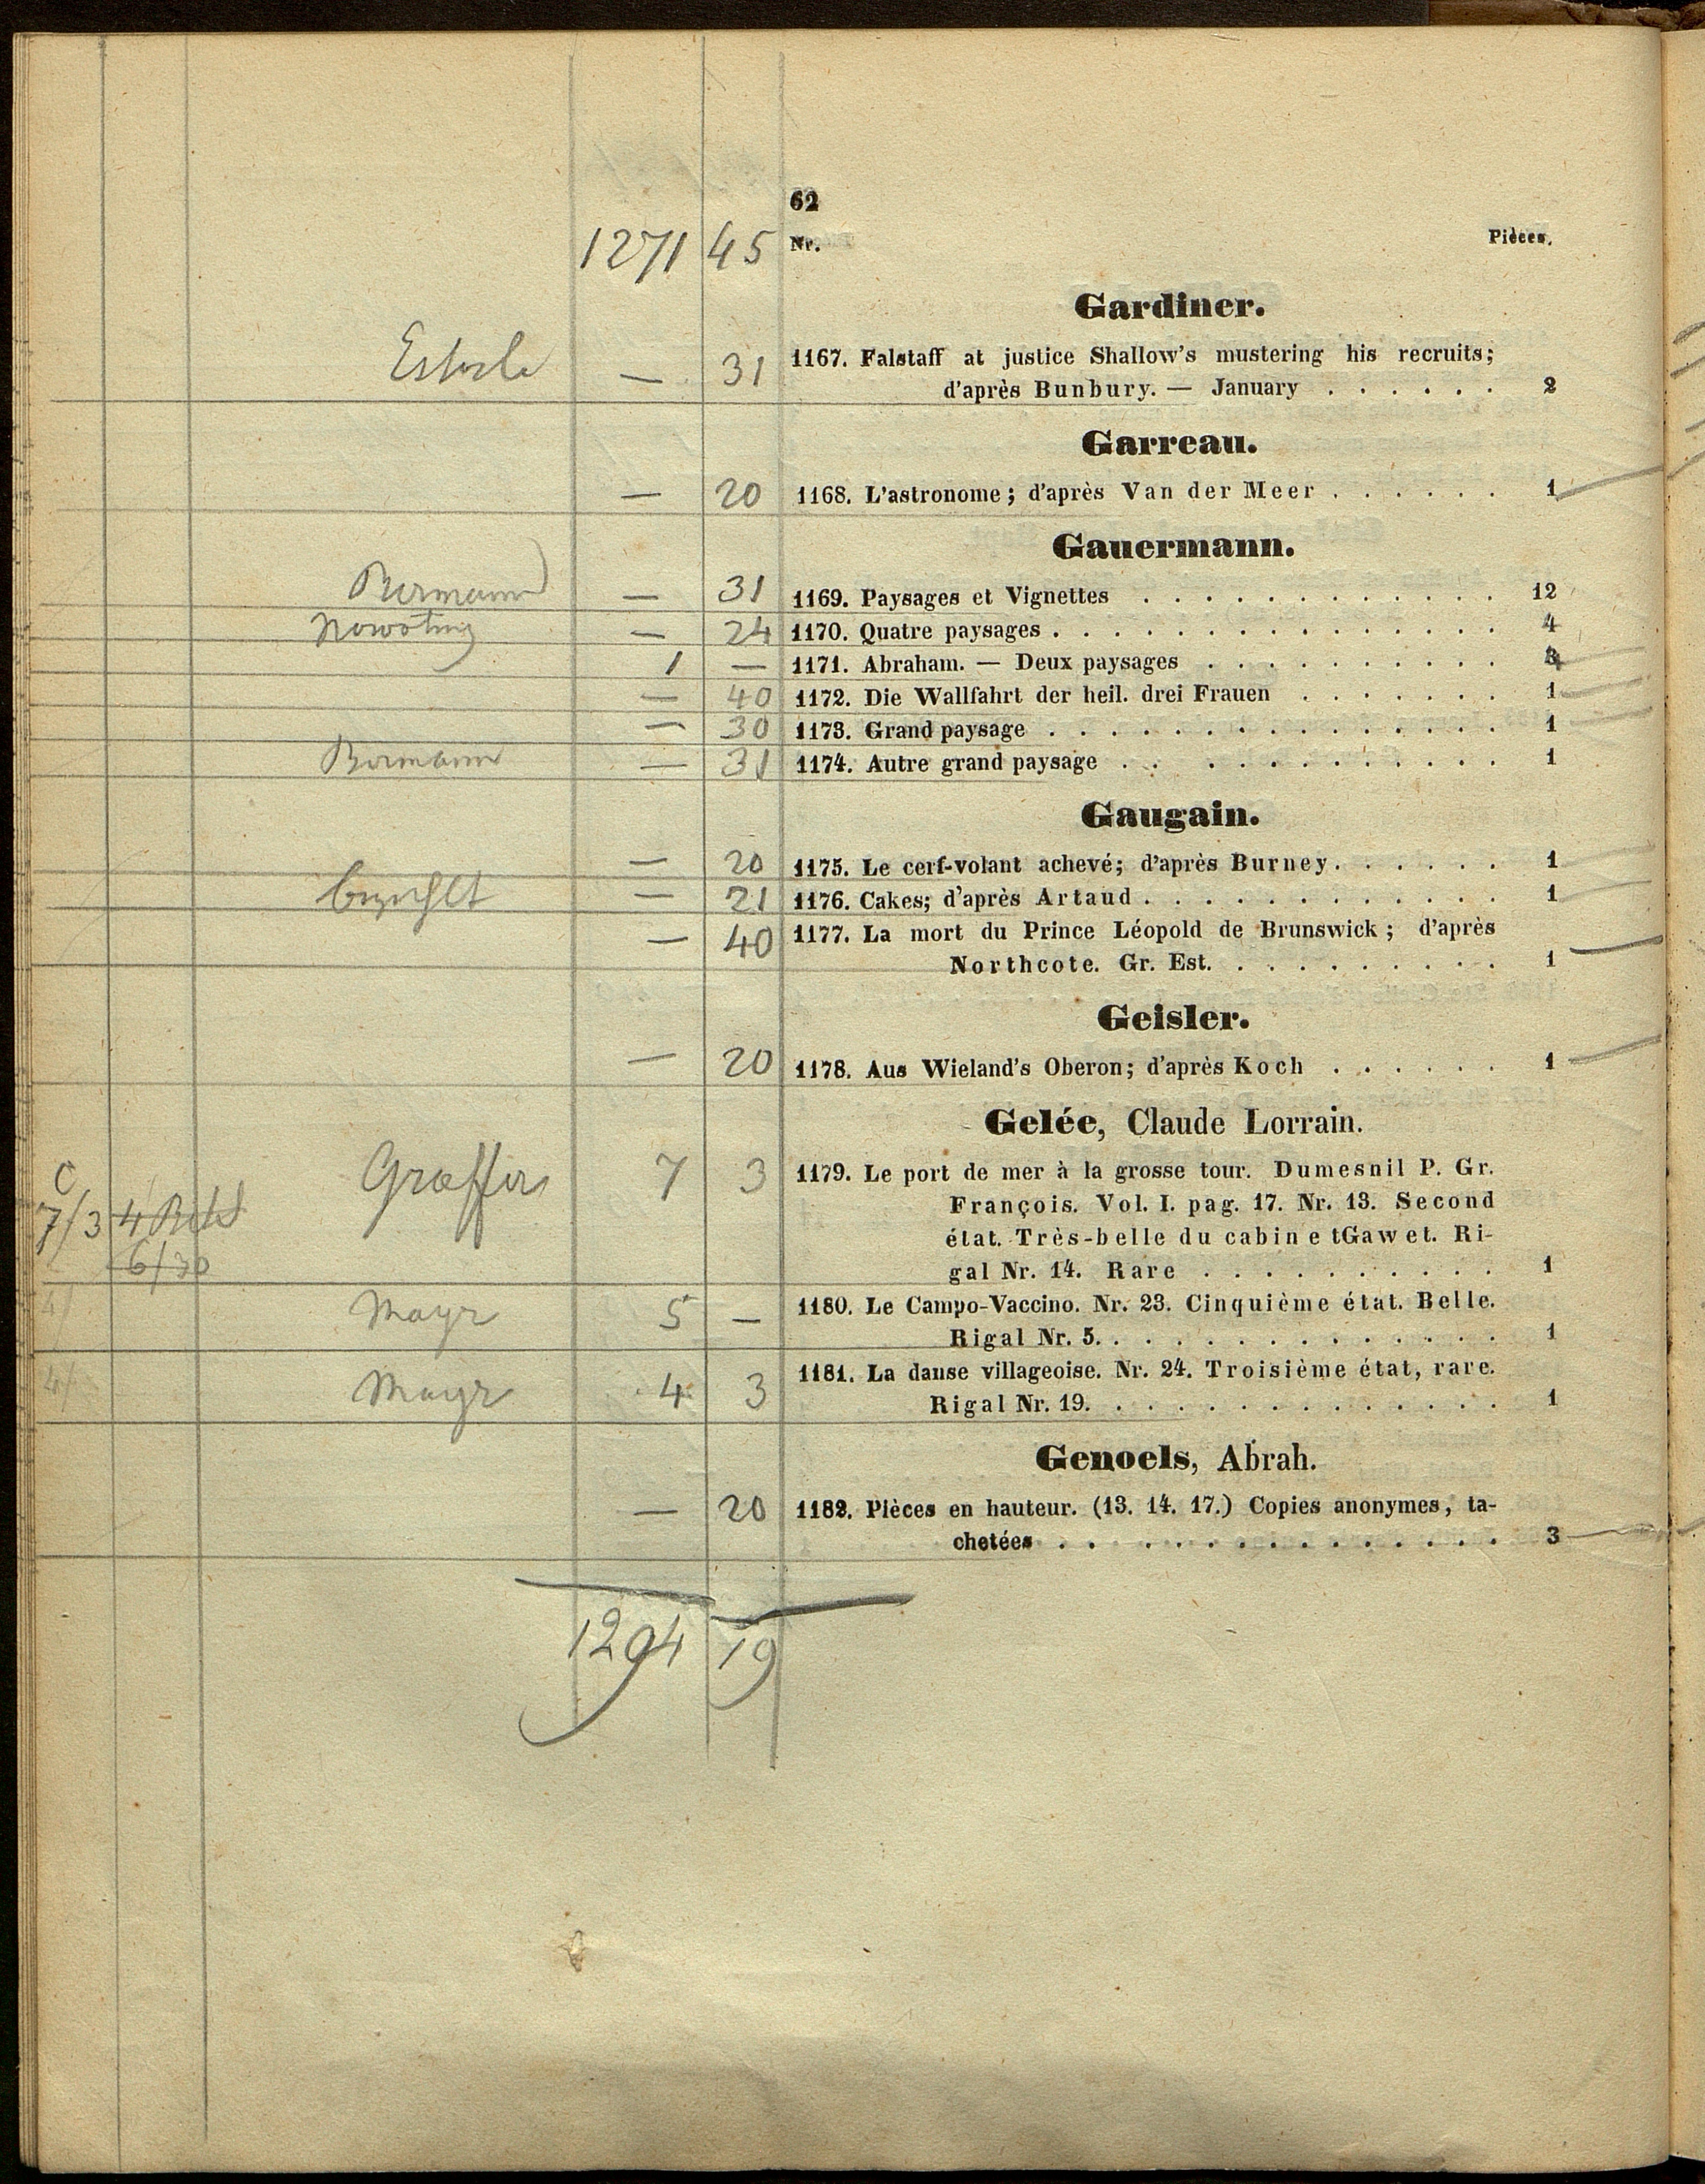 62
1271 45 Nr. Pièces.
Gardiner.
— 31 1167. Falstaff at justice Shallow's mustering his recruits;
d'après Bunbury. — January . . . . . . 2
Garreau.
— 20 1168. L'astronome; d'après Van der Meer . . . . . . 1
Gauermann.
Bermann — 31 1169. Paysages et Vignettes . . . . . . . . . . . . 12
Nowotny — 24 1170. Quatre paysages . . . . . . . . . . . . . . . 4
1 — 1171. Abraham. — Deux paysages . . . . . . . . . .
— 40 1172. Die Wallfahrt der heil. drei Frauen . . . . . . . 1
— 30 1173. Grand paysage . . . . . . . . . . . . . . . 1
Bermann — 31 1174. Autre grand paysage . . . . . . . . . . . . 1
Gaugain.
— 20 1175. Le cerf-volant achevé; d'après Burney. . . . . . 1
— 21 1176. Cakes; d'après Artaud . . . . . . . . . . . . 1
— 40 1177. La mort du Prince Léopold de Brunswick; d'après
Northcote. Gr. Est. . . . . . . . . . 1
Geisler.
— 20 1178. Aus Wieland's Oberon; d'après Koch . . . . . . 1
Gelée, Claude Lorrain.
C
7/3 Graffer 7 3 1179. Le port de mer à la grosse tour. Dumesnil P. Gr.
François. Vol. I. pag. 17. Nr. 13. Second
6/30 état. Très-belle du cabine tGawet. Ri-
gal Nr. 14. Rare . . . . . . . . . . 1
4/ Mayr 5 — 1180. Le Campo-Vaccino. Nr. 23. Cinquième état. Belle.
Rigal Nr. 5. . . . . . . . . . . . . . 1
4/ Mayr 4 3 1181. La danse villageoise. Nr. 24. Troisième état, rare.
Rigal Nr. 19. . . . . . . . . . . . . . 1
Genoels, Abrah.
— 20 1182. Pièces en hauteur. (13. 14. 17.) Copies anonymes, ta-
chetées . . . . . . . . . . . . . . 3
1294 19